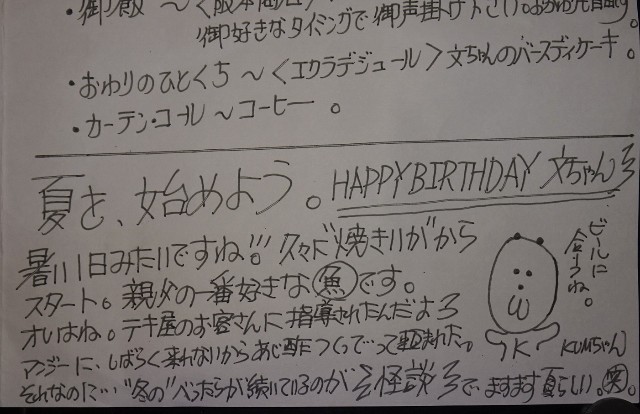 ・御飯 〜 〈
御好きなタイミングで御声掛け下さい。
・おわりのひとくち 〜 〈エクラデジュール〉文ちゃんのバースディケーキ。
・カーテン・コール 〜 コーヒー 。
夏を、始めよう。HAPPY BIRTHDAY 文ちゃん
暑い1日みたいですね!!! 久々に"焼きリガ"から
スタート。親父の一番好きな魚です。
オレはね。テキ屋のお客さんに指導されたんだよ
マジーに、しばらく来れないからあじ酢につくってって頼まれた。
それなのに…"冬の"べったらが続いているのが怪談で、ますます夏らしい。笑。
ビールに
合うね。
K
KUMちゃん